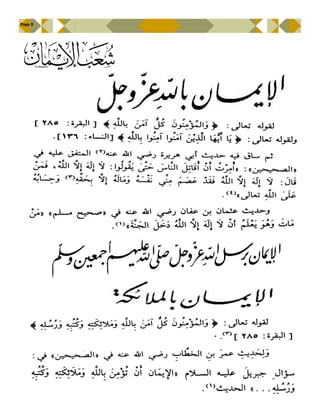 Page 2
شعب الإيمان
الإيمان بالله عز وجل
لقوله تعالى: ﴿ وَالْمُؤْمِنُونَ كُلٌّ آمَنَ بِاللَّهِ ﴾ [ البقرة: ٢٨٥ ]
ولقوله تعالى: ﴿ يَا أَيُّهَا الَّذِينَ آمَنُوا آمِنُوا بِاللَّهِ ﴾ [النساء: ١٣٦].
ثم ساق فيه حديث أبي هريرة رضي الله عنه(٢) المتفق عليه في
«الصحيحين»: «أُمِرْتُ أَنْ أُقَاتِلَ النَّاسَ حَتَّى يَقُولُوا: لَا إِلَهَ إِلَّا اللَّهُ، فَمَنْ
قَالَ: لَا إِلَهَ إِلَّا اللَّهُ فَقَدْ عَصَمَ مِنِّي نَفْسَهُ وَمَالَهُ إِلَّا بِحَقِّهِ(٣) وَحِسَابُهُ
عَلَى اللَّهِ تعالى»(٤).
وحديث عثمان بن عفان رضي الله عنه في «صحيح مسلم» «مَنْ
مَاتَ وَهُوَ يَعْلَمُ أَنْ لَا إِلَهَ إِلَّا اللَّهُ دَخَلَ الجَنَّةَ»(١).
الإيمان برسل الله عز وجل صلى الله عليهم أجمعين وسلم
الإيمان بالملائكة
لقوله تعالى: ﴿ وَالْمُؤْمِنُونَ كُلٌّ آمَنَ بِاللَّهِ وَمَلَائِكَتِهِ وَكُتُبِهِ وَرُسُلِهِ ﴾
[ البقرة: ٢٨٥ ](٣). ٠
وَلِحَدِيثِ عمرَ بن الخطّاب رضي الله عنه في «الصحيحين» في:
سؤال جبريلَ عليه السلام «الإِيمَان أَنْ تُؤْمِنَ بِاللَّهِ وَمَلَائِكَتِهِ وَكُتُبِهِ
وَرُسُلِهِ . . . » الحديث(١).